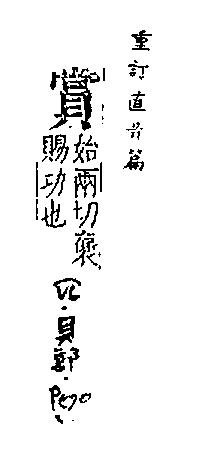 重訂直音篇
賞
始兩切褒
賜功也
貝部